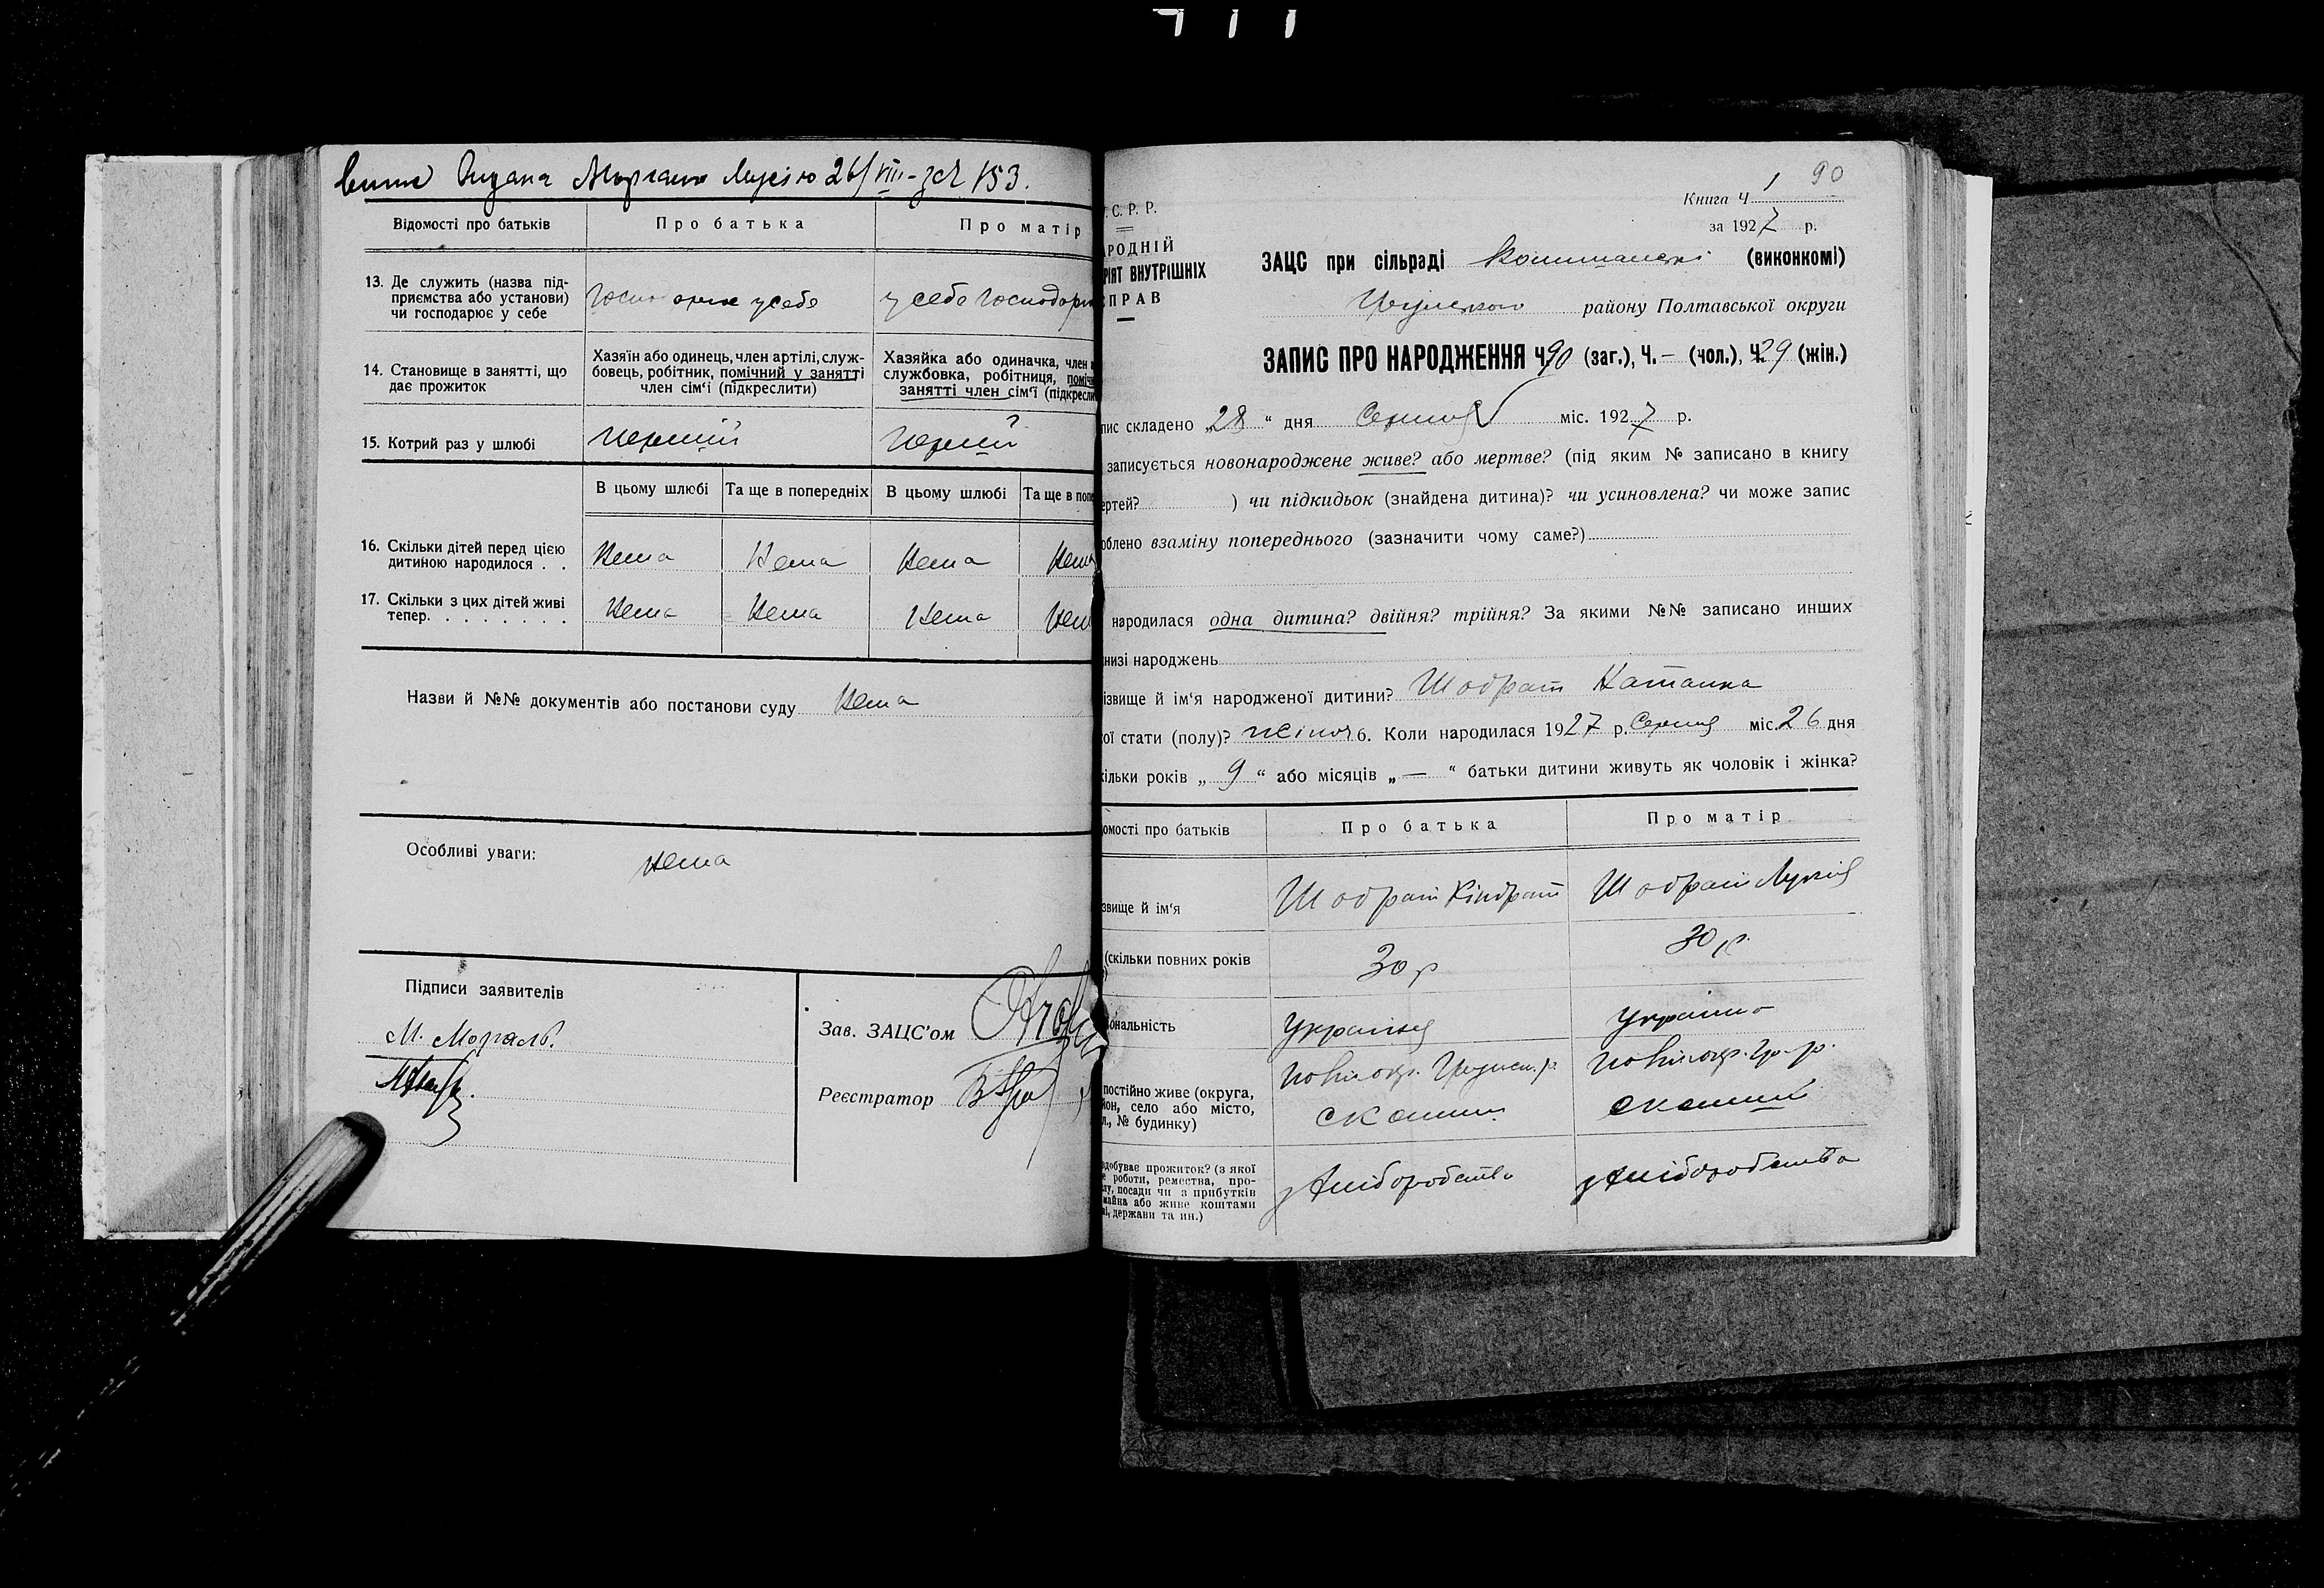 Видана Моргаль Мусію 26/VIII - зач 153.
Відомості про батьків
Про батька
Про матір
13. Де служить (назва під-
приємства або установи)
чи господарює у себе
господарює у себе
у себе господарю
14. Становище в занятті, що
дає прожиток
Хазяїн або одинець, член артілі, служ-
бовець, робітник, помічний у занятті
член сім'ї (підкреслити)
Хазяйка або одиначка, член
службовка, робітниця, поміч
занятті член сім'ї (підкресли
15. Котрий раз у шлюбі
перший
перший
В цьому шлюбі
Та ще в попередніх
В цьому шлюбі
Та ще в попе
16. Скільки дітей перед цією
дитиною народилося . .
Нема
Нема
Нема
Нема
17. Скільки з цих дітей живі
тепер. . . . . . . .
Нема
Нема
Нема
Нем
Назви й №№ документів або постанови суду Нема
Особливі уваги: нема
Підписи заявителів
М. Моргаль.
Зав. ЗАЦС'ом
Реєстратор
90
Книга Ч 1
за 1927 р.
.С.Р.Р.
РОДНІЙ
РІЯТ ВНУТРІШНІХ
ПРАВ
ЗАЦС при сільраді (виконкомі)
району Полтавської округи
ЗАПИС ПРО НАРОДЖЕННЯ Ч. 90 (заг.), Ч. — (чол.), Ч. 29 (жін.)
пис складено „28" дня Серпня міс. 1927 р.
записується новонароджене живе? або мертве? (під яким № записано в книгу
ертей? ) чи підкидьок (знайдена дитина)? чи усиновлена? чи може запис
облено взаміну попереднього (зазначити чому саме?)
народилася одна дитина? двійня? трійня? За якими №№ записано инших
низі народжень
ізвище й ім'я народженої дитини? Шодрат Наталка
ої стати (полу)? жіноч 6. Коли народилася 1927 р. Серпня міс. 26 дня
кільки років „ 9 " або місяців „ — " батьки дитини живуть як чоловік і жінка?
омості про батьків
Про батька
Про матір
звище й ім'я
Шодрат Кіндрат
Шодрат Лукія
(скільки повних років
30 р
30 р.
іональність
Українец
Українка
постійно живе (округа,
йон, село або місто,
л., № будинку)
здобуває прожиток? (з якої
е роботи, ремества, про-
лу, посади чи з прибутків
майна або живе коштами
ні, держави та ин.)
з хліборобства
з хліборобства